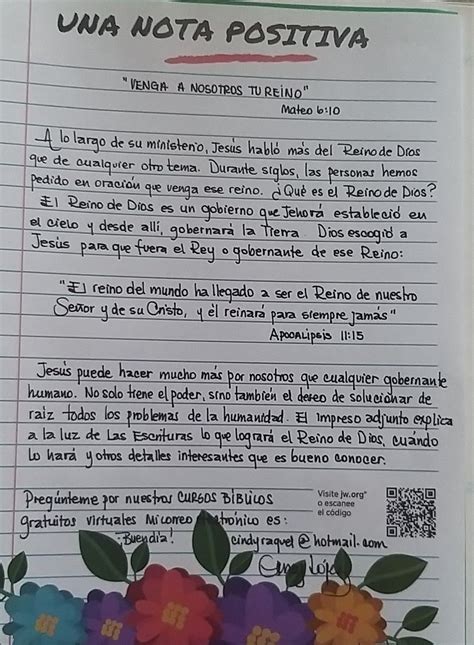 UNA NOTA POSITIVA
"VENGA A NOSOTROS TU REINO"
Mateo 6:10
A lo largo de su ministerio, Jesús habló más del Reino de Dios
que de cualquier otro tema. Durante siglos, las personas hemos
pedido en oración que venga ese reino. ¿Qué es el Reino de Dios?
El Reino de Dios es un gobierno que Jehová estableció en
el cielo y desde allí, gobernará la Tierra. Dios escogió a
Jesús para que fuera el Rey o gobernante de ese Reino:
"El reino del mundo ha llegado a ser el Reino de nuestro
Señor y de su Cristo, y él reinará para siempre jamás"
Apocalipsis 11:15
Jesús puede hacer mucho más por nosotros que cualquier gobernante
humano. No solo tiene el poder, sino también el deseo de solucionar de
raiz todos los problemas de la humanidad. El impreso adjunto explica
a la luz de Las Escrituras lo que logrará el Reino de Dios, cuándo
lo hará y otros detalles interesantes que es bueno conocer.
Pregúnteme por nuestros CURSOS BÍBLICOS
gratuitos virtuales Mi correo es:
¡Buen día! cindyraquel@hotmail.com
Visite jw.org
o escanee
el código